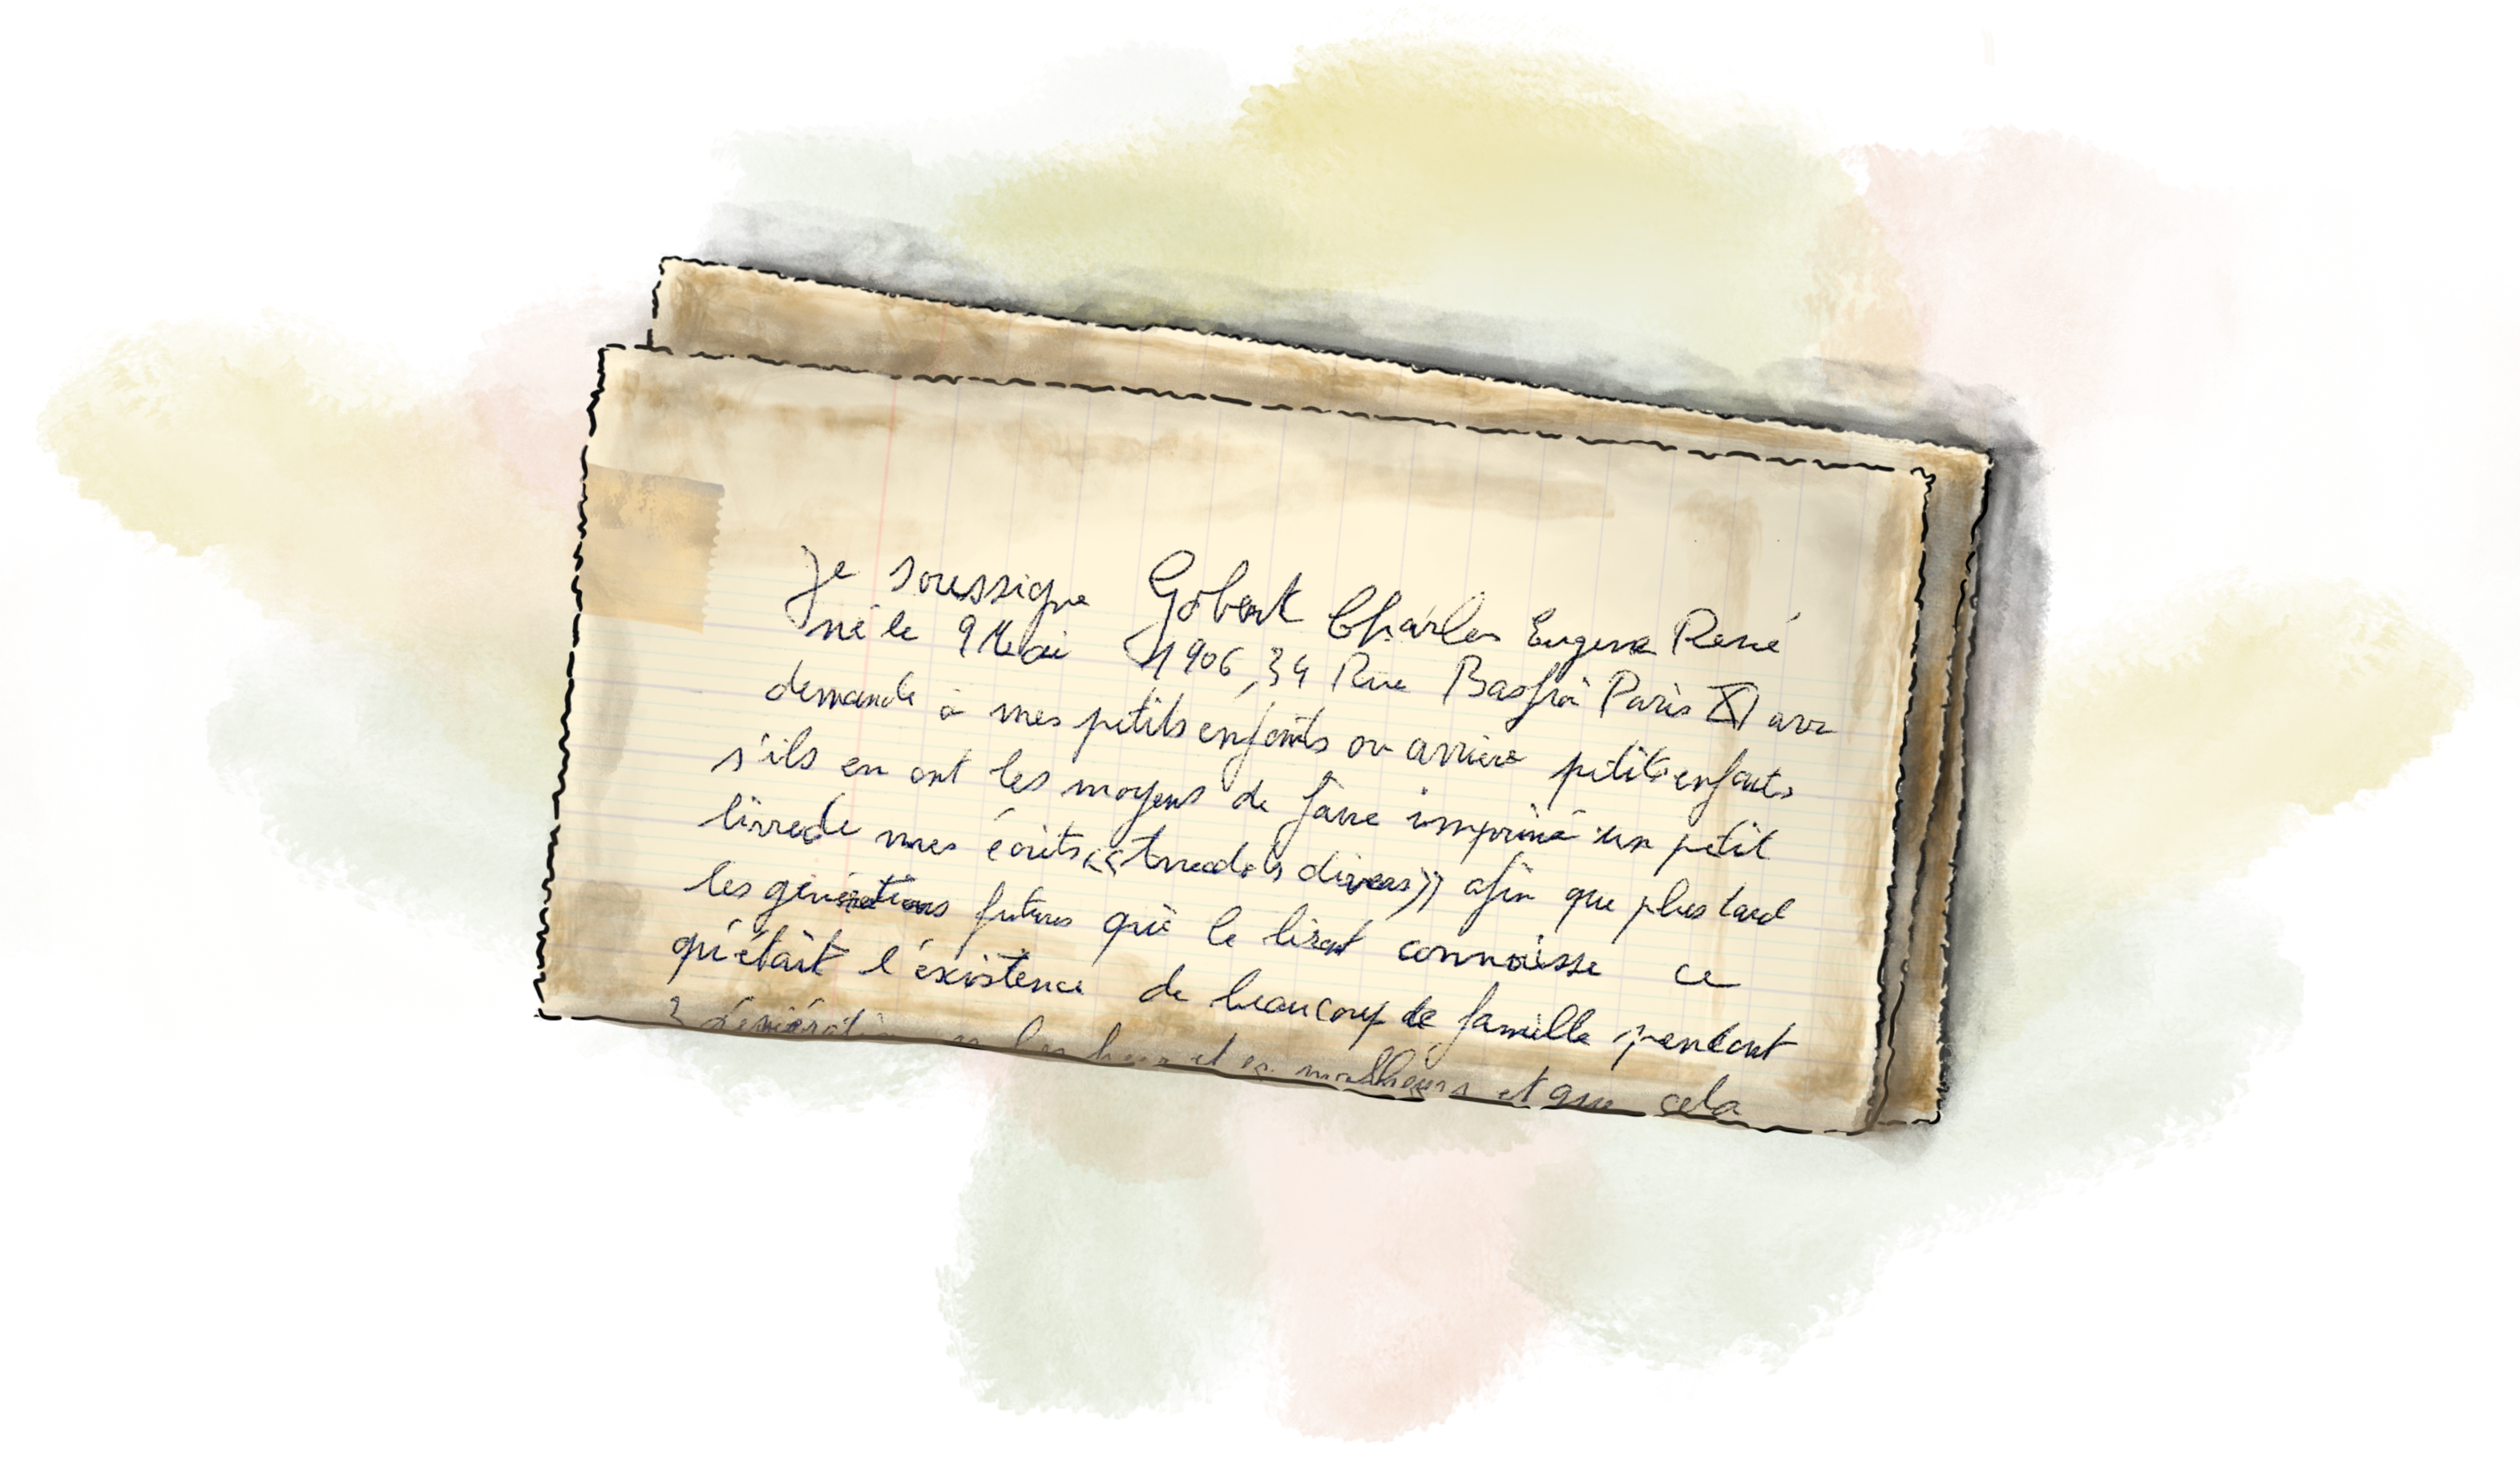 Je soussigne Gobert Charles Eugene René
né le 9 Mai 1906, 34 Rue Basfroi Paris XI arr
demande à mes petits enfants ou arrière petits enfants
s'ils en ont les moyens de faire imprimé un petit
livre de mes écrits « divers » afin que plus tard
les générations futures qui le liront connaisse ce
qu'était l'éxistence de beaucoup de famille pendant
3 générations et malheurs et que cela